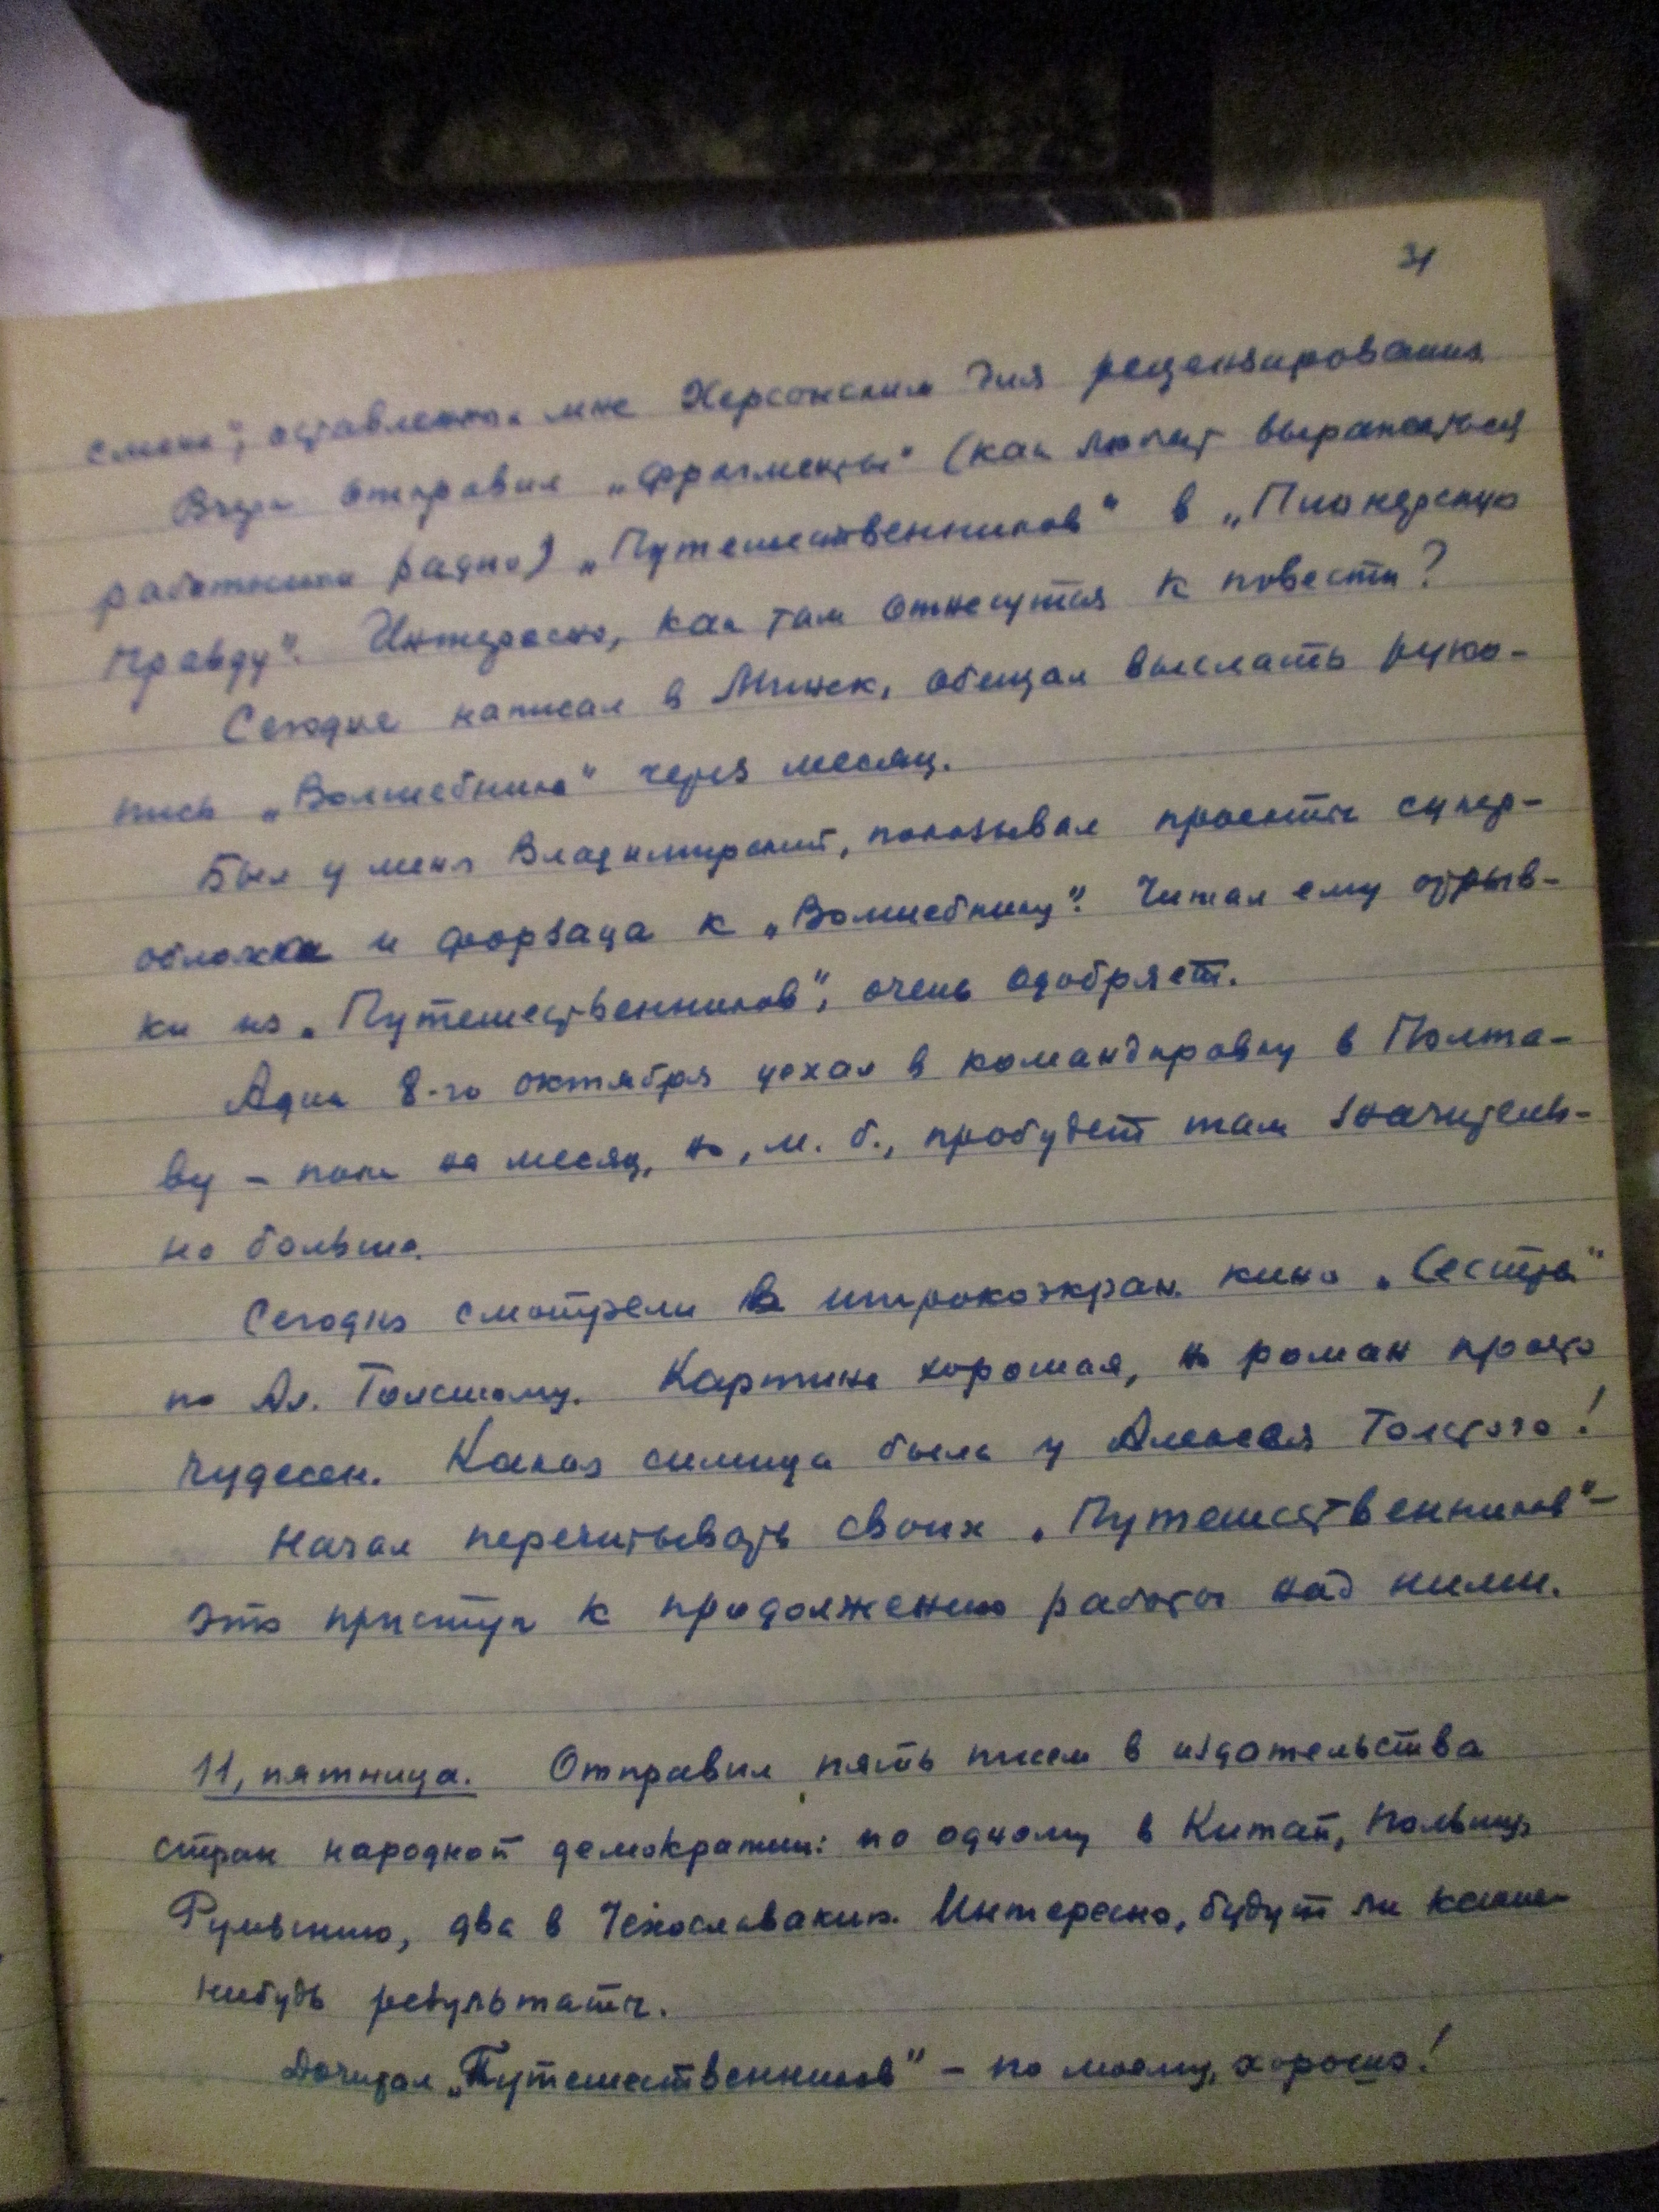 31
смене", оставленная мне Херсонским для рецензирования
Вчера отправил „фрагменты" (как любят выражаться
работники радио) „Путешественников" в „Пионерскую
правду". Интересно, как там отнесутся к повести?
Сегодня написал в Минск, обещал выслать руко-
пись „Волшебника" через месяц.
Был у меня Владимирский, показывал проекты супер-
обложки и форзаца к „Волшебнику". Читал ему отрыв-
ки из „Путешественников", очень одобряет.
Адик 8-го октября уехал в командировку в Полта-
ву – пока на месяц, но, м. б., пробудет там значитель-
но больше.
Сегодня смотрели в широкоэкран. кино „Сестры"
по Ал. Толстому. Картина хорошая, но роман просто
чудесен. Какая силища была у Алексея Толстого!
Начал перечитывать своих „Путешественников" –
это приступ к продолжению работы над ними.
11, пятница. Отправил пять писем в издательства
стран народной демократии: по одному в Китай, Польшу,
Румынию, два в Чехословакию. Интересно, будут ли какие-
нибудь результаты.
Дочитал „Путешественников" – по моему, хорошо!